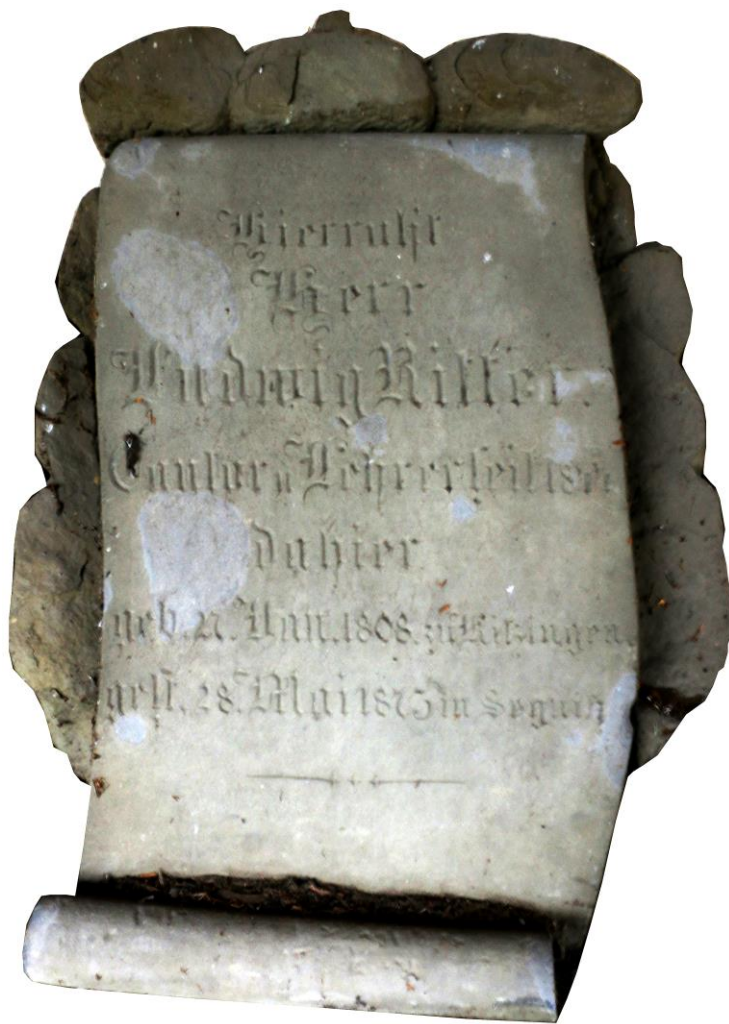 Hier ruht
Herr
Ludwig Ritter.
Cantor u. Lehrer seit
dahier
geb. 27. Jan. 1808. zu Kitzingen.
gest. 28. Mai 1875 in